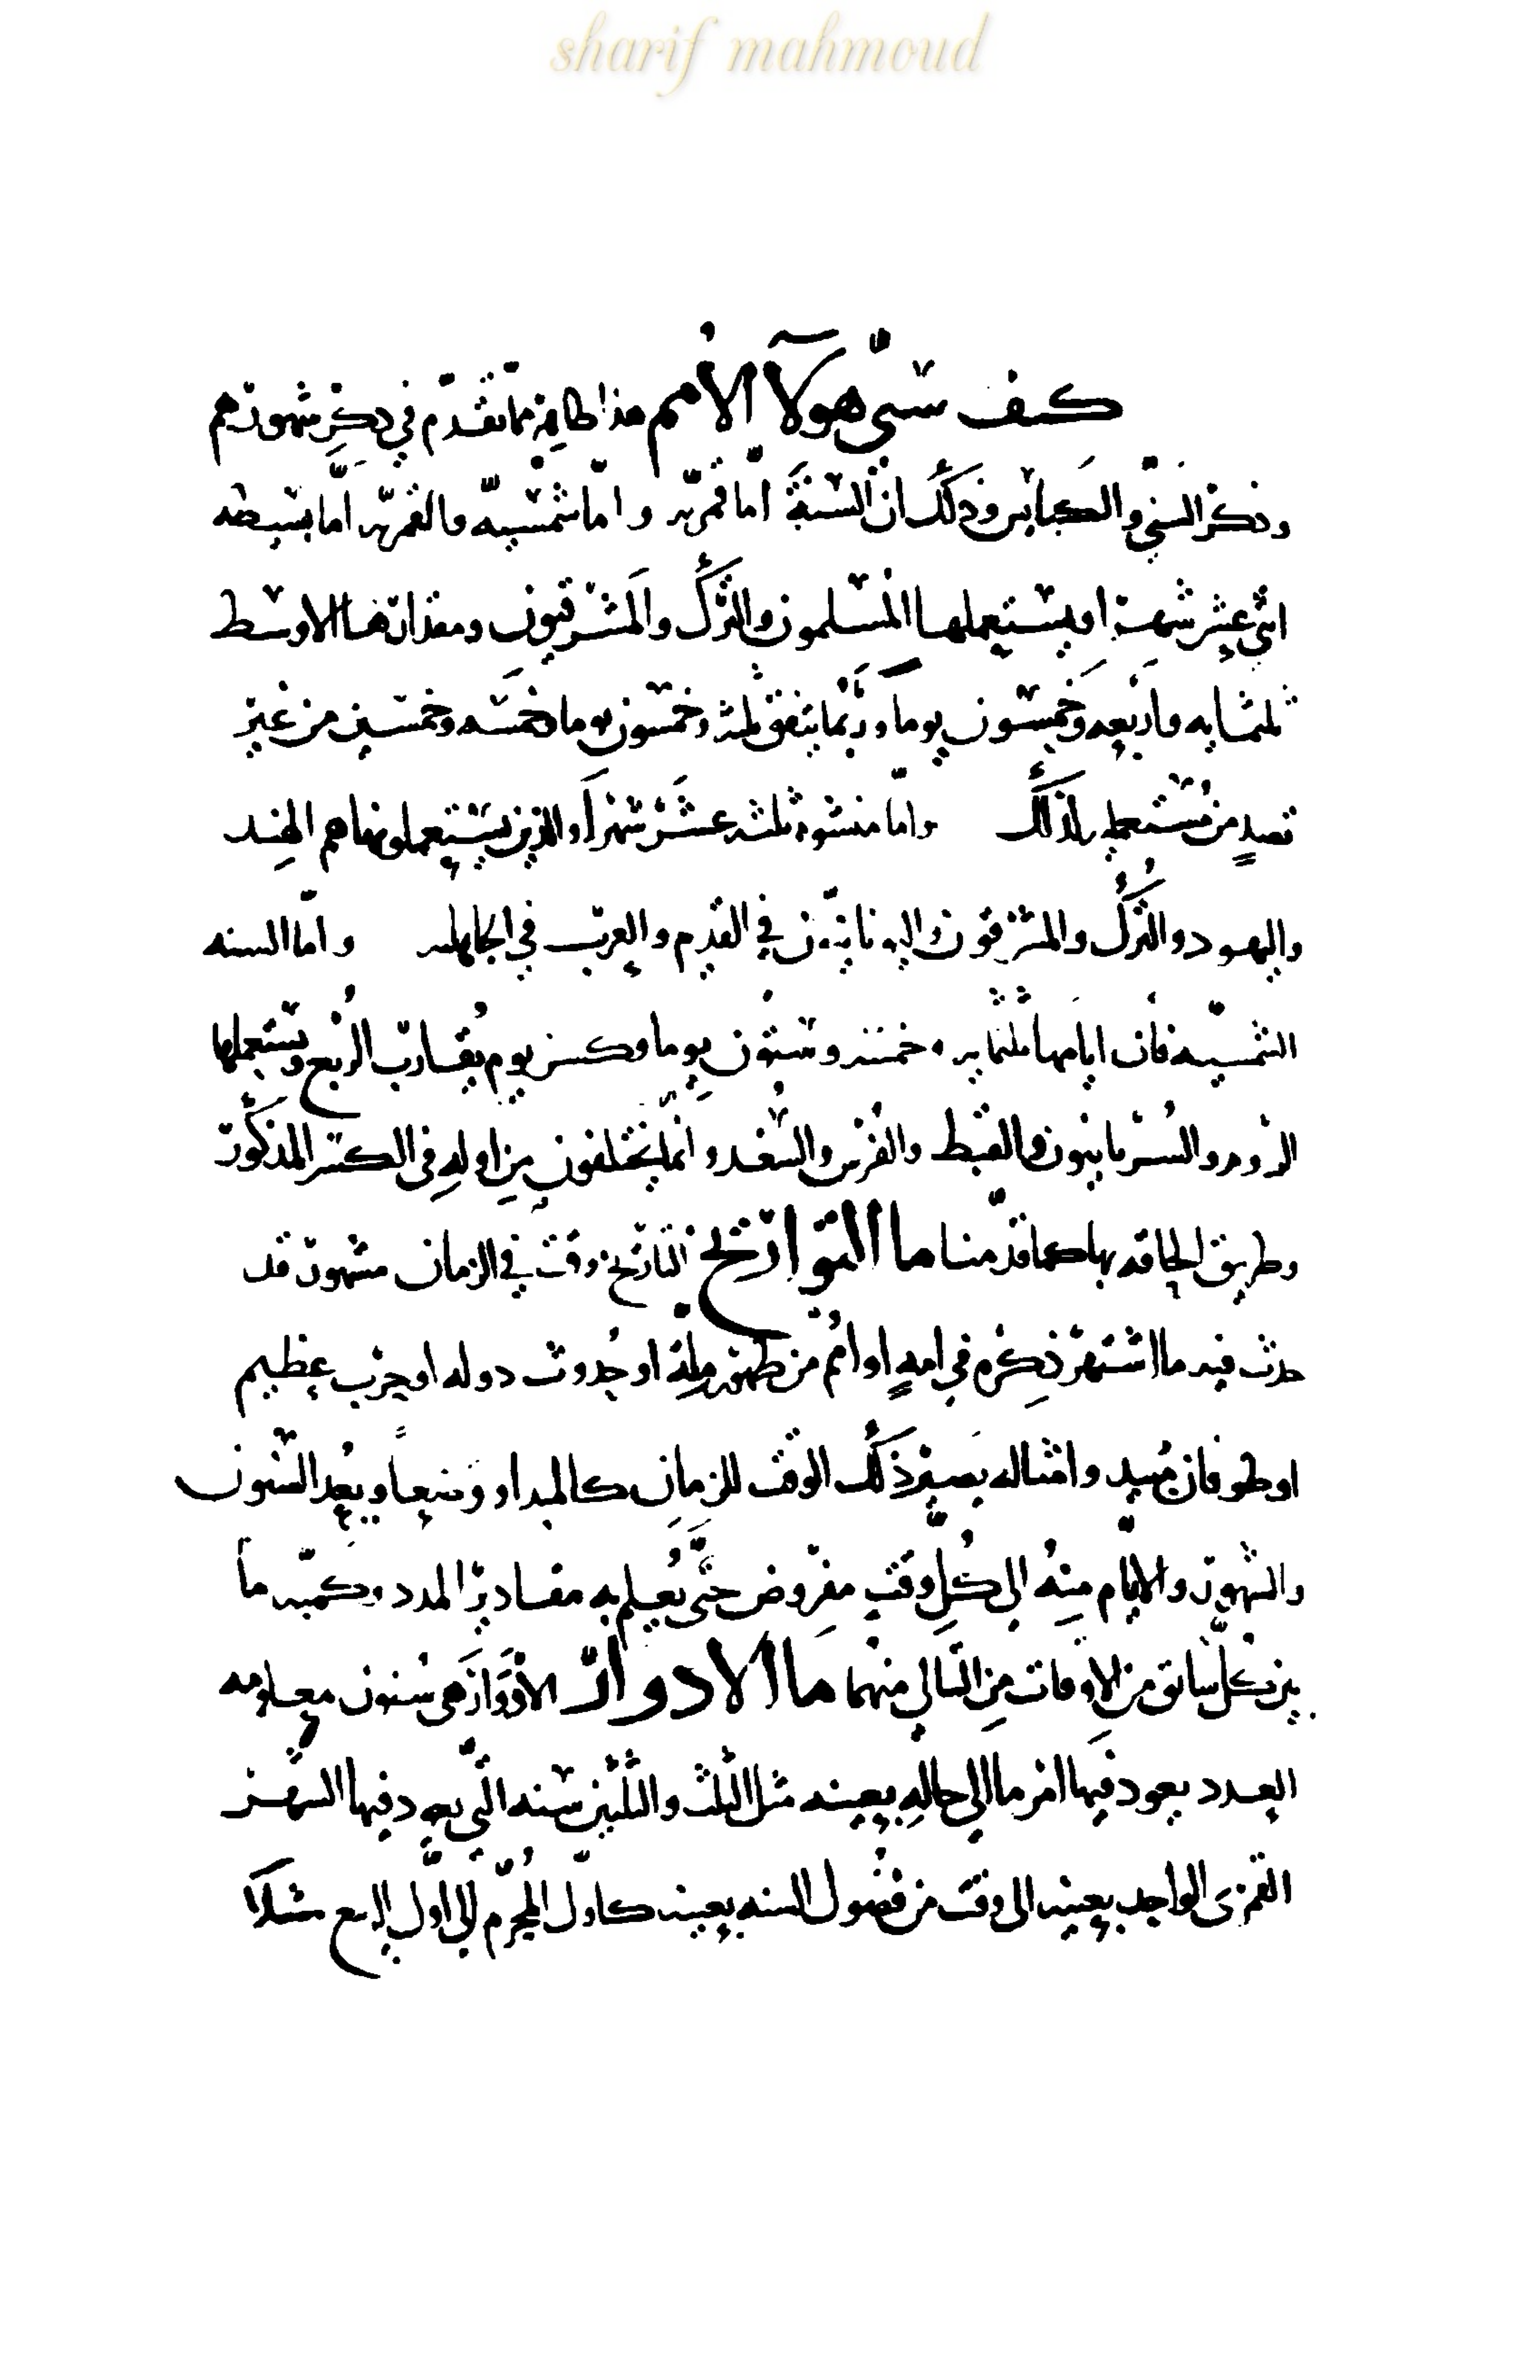 sharif mahmoud
كيف سني هولآ الأمم هذا ظاهر مما تقدم في ذكر شهورهم
وذكر السني والكبايس وذلك ان السنة اما قمريه واما شمسيه فالقمريه اما بسيطه
اثني عشر شهرا ويستعملها المسلمون والترك والمشرقيون ومقدارها الاوسط
ثلثمايه واربعه وخمسون يوما وربما يتفق ثلثه وخمسون يوما وخمسه وخمسين من غير
قصد من مستعمليه لذلك واما منسوه ثلثه عشر شهرا والذين يستعملونها هم الهند
واليهود والترك والمشرقون واليونانيون في القديم والعرب في الجاهليه واما السنه
الشمسيه فان ايامها ثلثمايه وخمسه وستون يوما وكسر يوم يقارب الربع ويستعملها
الروم والسريانيون والقبط والفرس والسغد وانما يختلفون من اوله في الكسر المذكور
وطريق الحاقه بها كما قدمنا ما التواريخ التاريخ وقت في الزمان مشهور قد
حدث فيه ما اشتهر ذكره في امه او امم من ظهور ملة او حدوث دوله او حرب عظيم
او طوفان مبيد وامثاله يصير ذلك الوقت للزمان كالمبدا و يعد السنون
والشهور والايام منه الى كل وقت مفروض حتى يعلم به مقادير المدد وكميه ما
بين كل سابق من الاوقات من التالي منهما ما الادوار الادوار هي سنون معلومه
العدد يعود فيها امر ما الى حاله بعينه مثل الثلث والثلثين سنه التي يعود فيها الشهر
القمري الواحد بعينه الى وقت من فصول السنه بعينه كاول المحرم الى اول الربيع مثلا